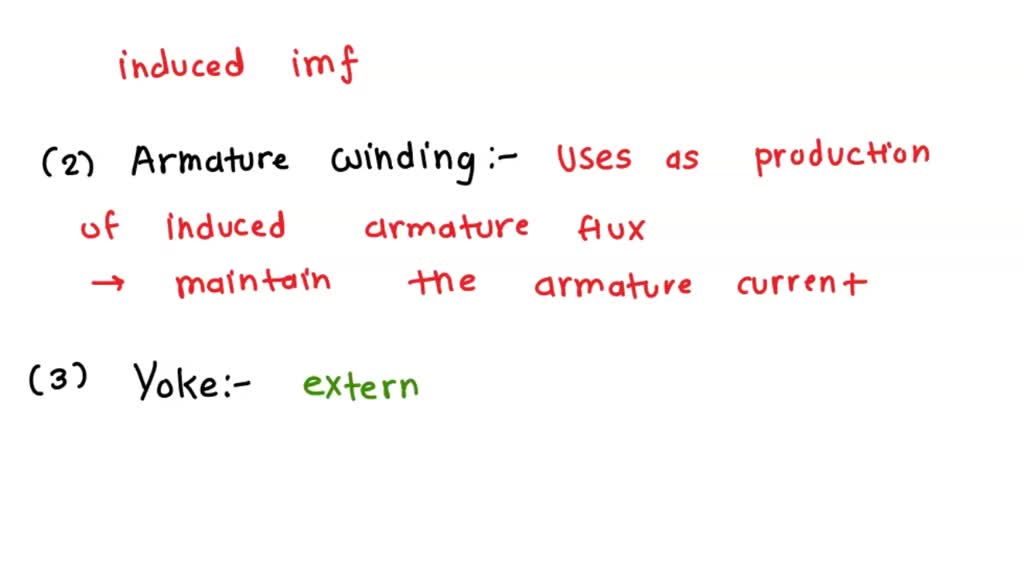 induced imf
(2) Armature winding:- Uses as production
of induced armature flux
→ maintain the armature current
(3) Yoke:- extern